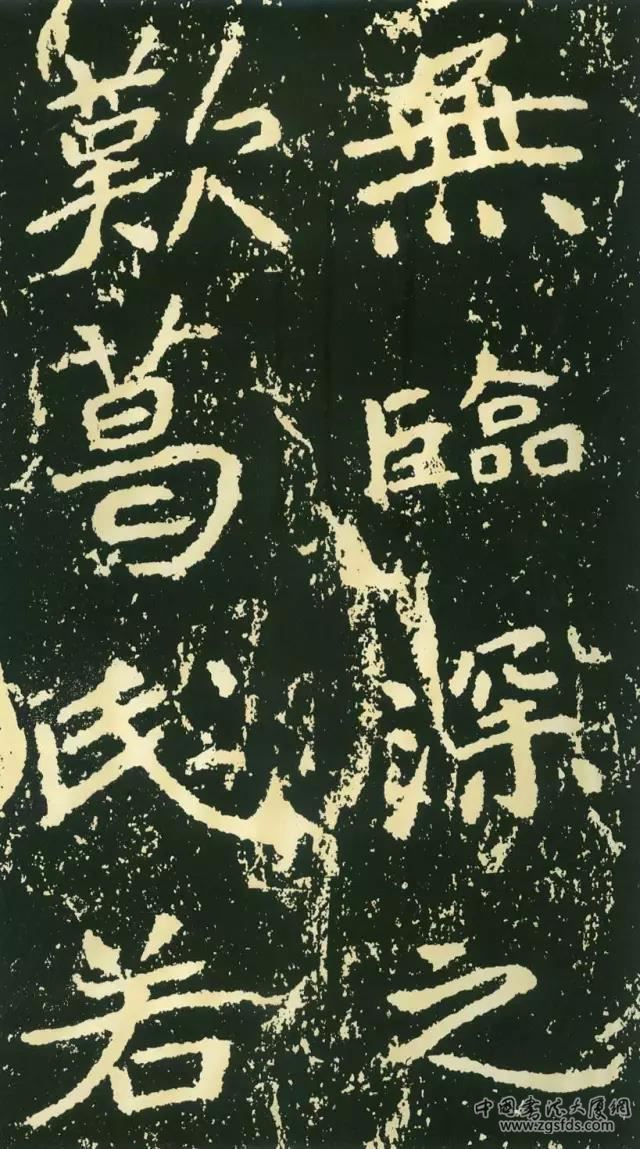 無臨深之
歎葛氏若
中国书法大展网
www.zgsfds.com